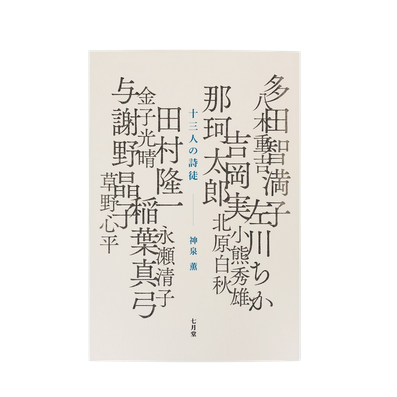 多田智満子
八木重吉
左川ちか
吉岡実
小熊秀雄
北原白秋
那珂太郎
十三人の詩徒
神泉 薫
田村隆一
永瀬清子
稲葉真弓
金子光晴
与謝野晶子
草野心平
七月堂